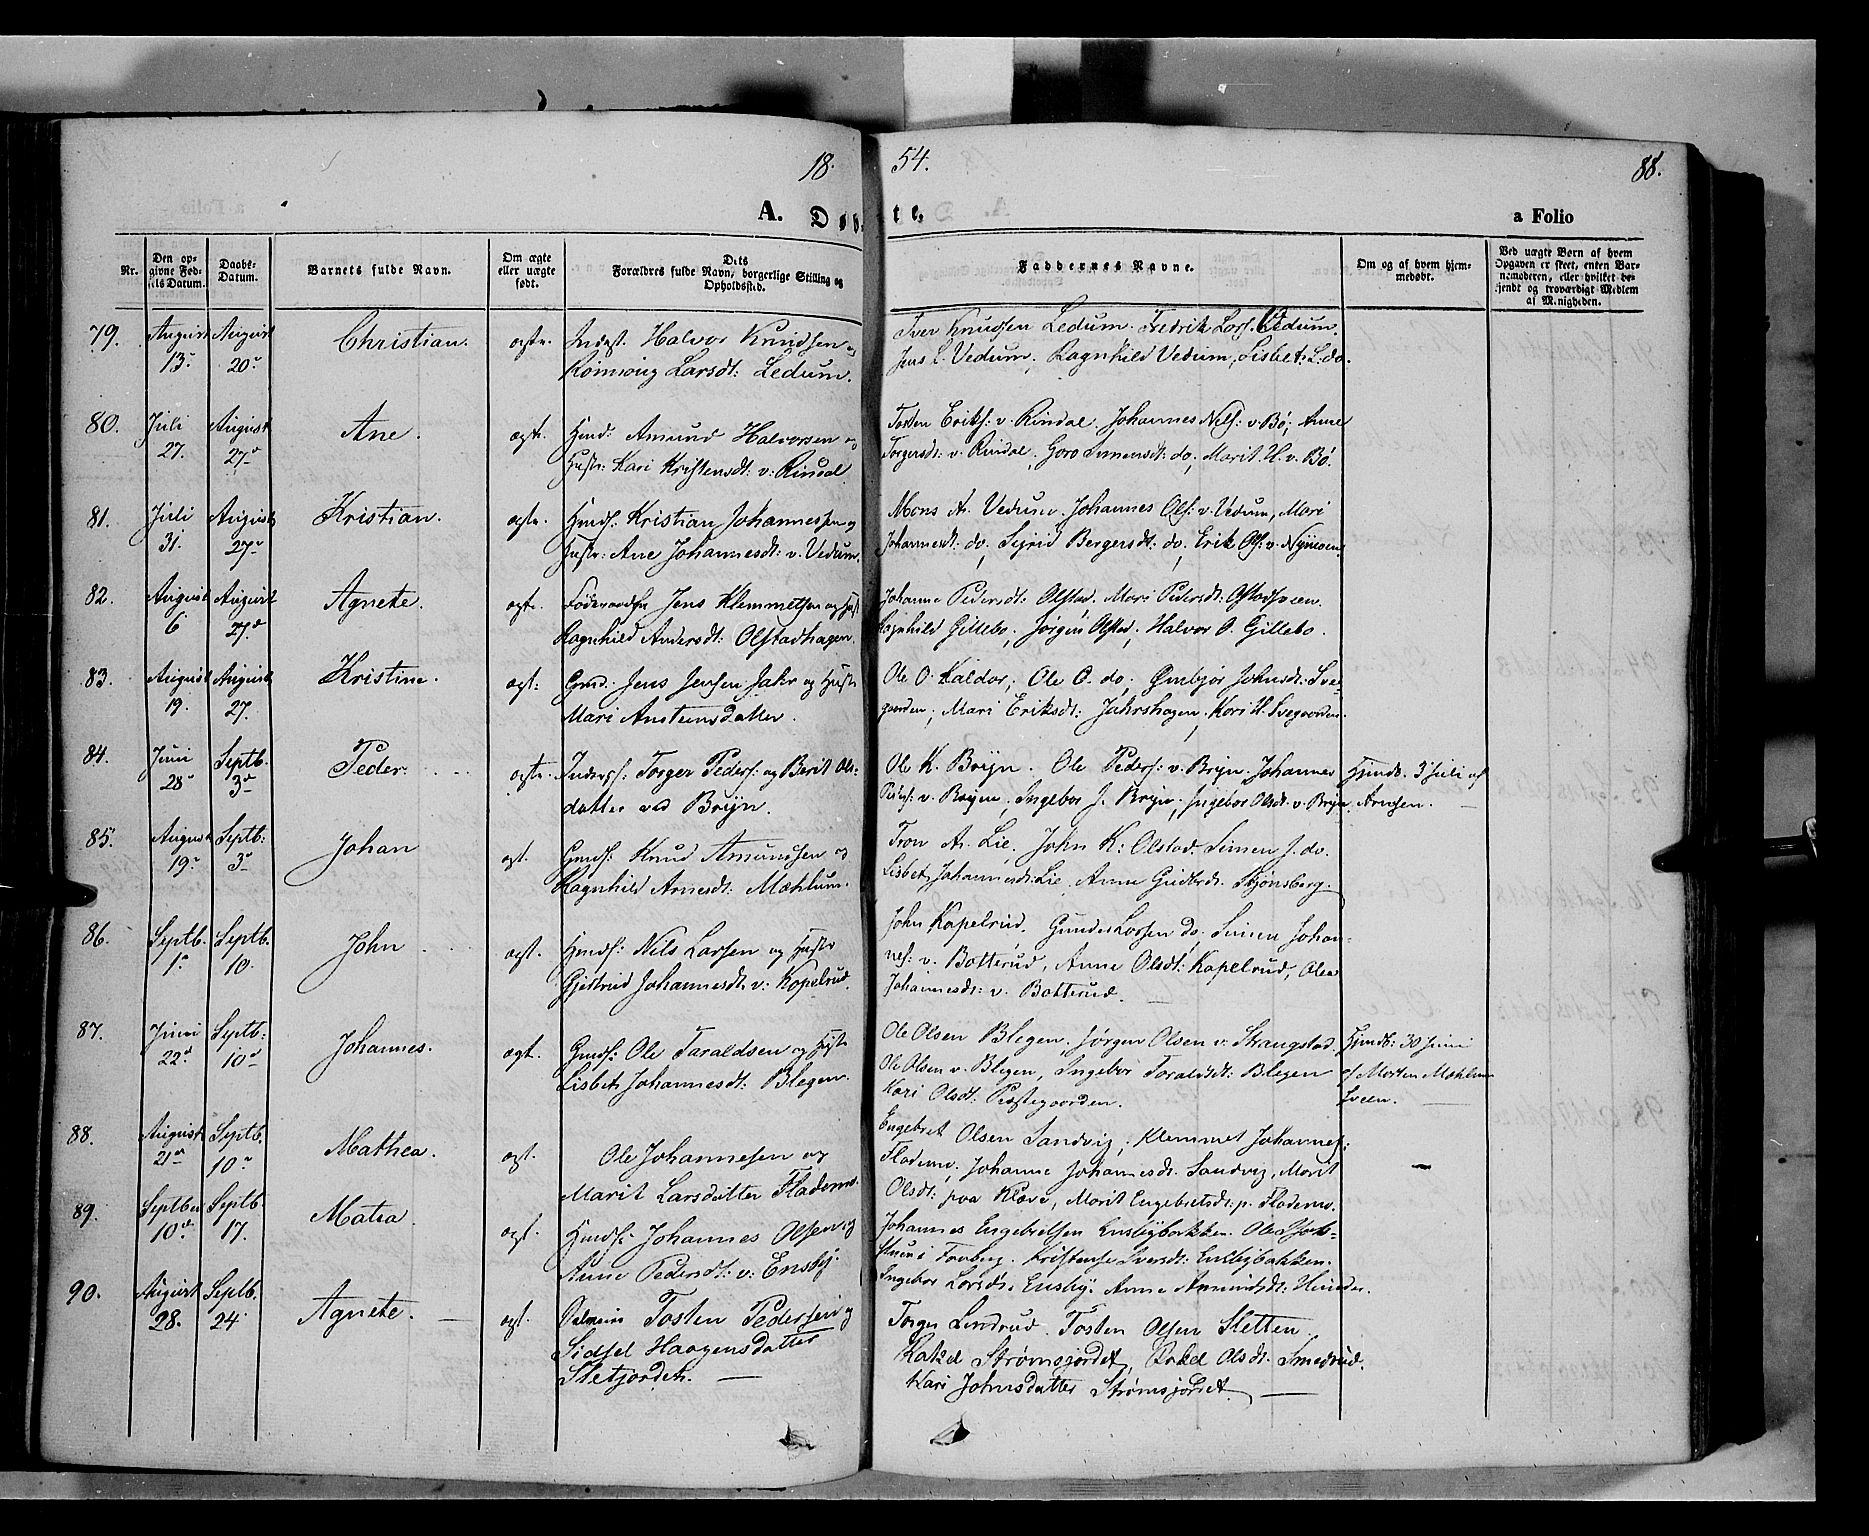 18. 54. 88.
A. Døbte. a Folio
Nr.
Den op-
givne Fød-
sels Datum.
Daabs-
Datum.
Barnets fulde Navn.
Om ægte
eller uægte
født.
Dets
Forældres fulde Navn, borgerlige Stilling og
Opholdssted.
Faddernes Navne.
Om og af hvem hjem-
medøbt.
Ved uægte Børn af hvem
Opgaven er skeet, enten Bar-
nemoderen, eller hvilket be-
kjendt og troværdigt Medlem
af Menigheden.
79. August 13. August 20. Christian. ægte. Halvor Knudsen og
Larsdt: Ledum.
Iver Knudsen Ledum. Fredrik Lars. Vedum.
Jens L. Vedum, Ragnhild Vedum, Lisbet L. do.
80. Juli 27. August 27. Ane. ægte. Hmd: Amund Halvorsen og
Hustr: Kari Kristensdt: v. Rindal.
Tosten Eriks: v. Rindal, Johannes Nils: v. Bø, Anne
Torgersdt: v. Rindal, Goro Simensdt: do, Marit H. v. Bø.
81. Juli 31. August 27. Kristian. ægte. Hmds: Kristian Johannessen og
Hustr: Ane Johannesdt: v. Vedum.
Mons A. Vedum. Johannes Ols: v. Vedum, Mari
Johannesdt: do, Sigrid Bergersdt: do, Erik Ols: v. Nymoen.
82. August 6. August 27. Agnete. ægte. Jens Klemmetsen og Hust
Ragnhild Andersdt: Olstadhagen.
Johanne Pedersdt: Olstad. Mari Pedersdt: Olstadsveen.
Ragnhild Gillebo, Jørgen Olstad, Halvor O. Gillebo.
83. August 19. August 27. Kristine. ægt: Gmd: Jens Jensen Jahr og Hustr
Mari Ansteensdatter.
Ole O. Kaldor, Ole O. do, Embjør Johnsdt: Sve-
gaarden, Mari Eriksdt: Jahrshagen, Kari H. Svegaarden.
84. Juni 28. Septb. 3. Peder. ægte. Inderst: Torger Peders: og Berit Ols-
datter ved Bryn.
Ole K. Bryn. Ole Peders: v. Bryn. Johannes
Peders: v. Bryn, Ingebor J. Bryn, Ingebor Olsdt: v. Bryn.
Hjmdb. 3 Juli af
Arnesen.
85. August 19. Septb: 3. Johan ægt. Gmds: Knud Amundsen og
Ragnhild Arnesdt: Mæhlum.
Tron A. Lie. John K: Olstad. Simen J. do.
Lisbet Johannesdt: Lie, Anne Gudbrdt: Skjønsberg.
86. Septb. 1. Septb. 10. John ægt. Hmds: Nils Larsen og Hustr
Gjertrud Johannesdt: v: Kapelrud.
John Kapelrud. Gunder Larsen do. Simen Johan-
nes: v. Botterud, Anne Olsdt: Kapelrud, Olea
Johannesdt: v. Botterud.
87. Juni 22. Septb: 10. Johannes. ægt. Gmds: Ole Taraldsen og Hustr
Lisbet Johannesdt: Blegen.
Ole Olsen Blegen, Jørgen Olsen v: Skrangstad.
Ole Olsen v. Blegen, Ingebor Taraldsdt: Blegen
Kari Olsdt: Præstegaarden.
Hjmdb: 30 Juni
af Morten Mæhlum
Sveen.
88. August 21. Septb. 10. Mathea. ægt. Ole Johannesen og
Marit Larsdatter Fladem.
Engebret Olsen Sandvig, Klemmet Johannes:
Fladem, Johanne Johannesdt: Sandvig, Marit
Olsdt: paa Kløve, Marit Engebretsdt: p. Fladem.
89. Septber 10. Septb. 17. Matea. ægt. Hmds: Johannes Olsen og
Anne Pedersdt: v: Ensby.
Johannes Engebretsen Ensbybakken. Ole
Froberg. Kristense Iversdt: Ensbybakken.
Ingebor Larsdt: Ensby. Anne Amundsdt:
90. August 28. Septb. 24 Agnete. ægt. Tosten Pedersen og
Sidsel Haagensdatter
Sletjordet.
Torger Lindrud. Tosten Olsen Sletten.
Rakel Strømsjordet, Rakel Olsdt. Smedrud.
Kari Johnsdatter Strømsjordet.